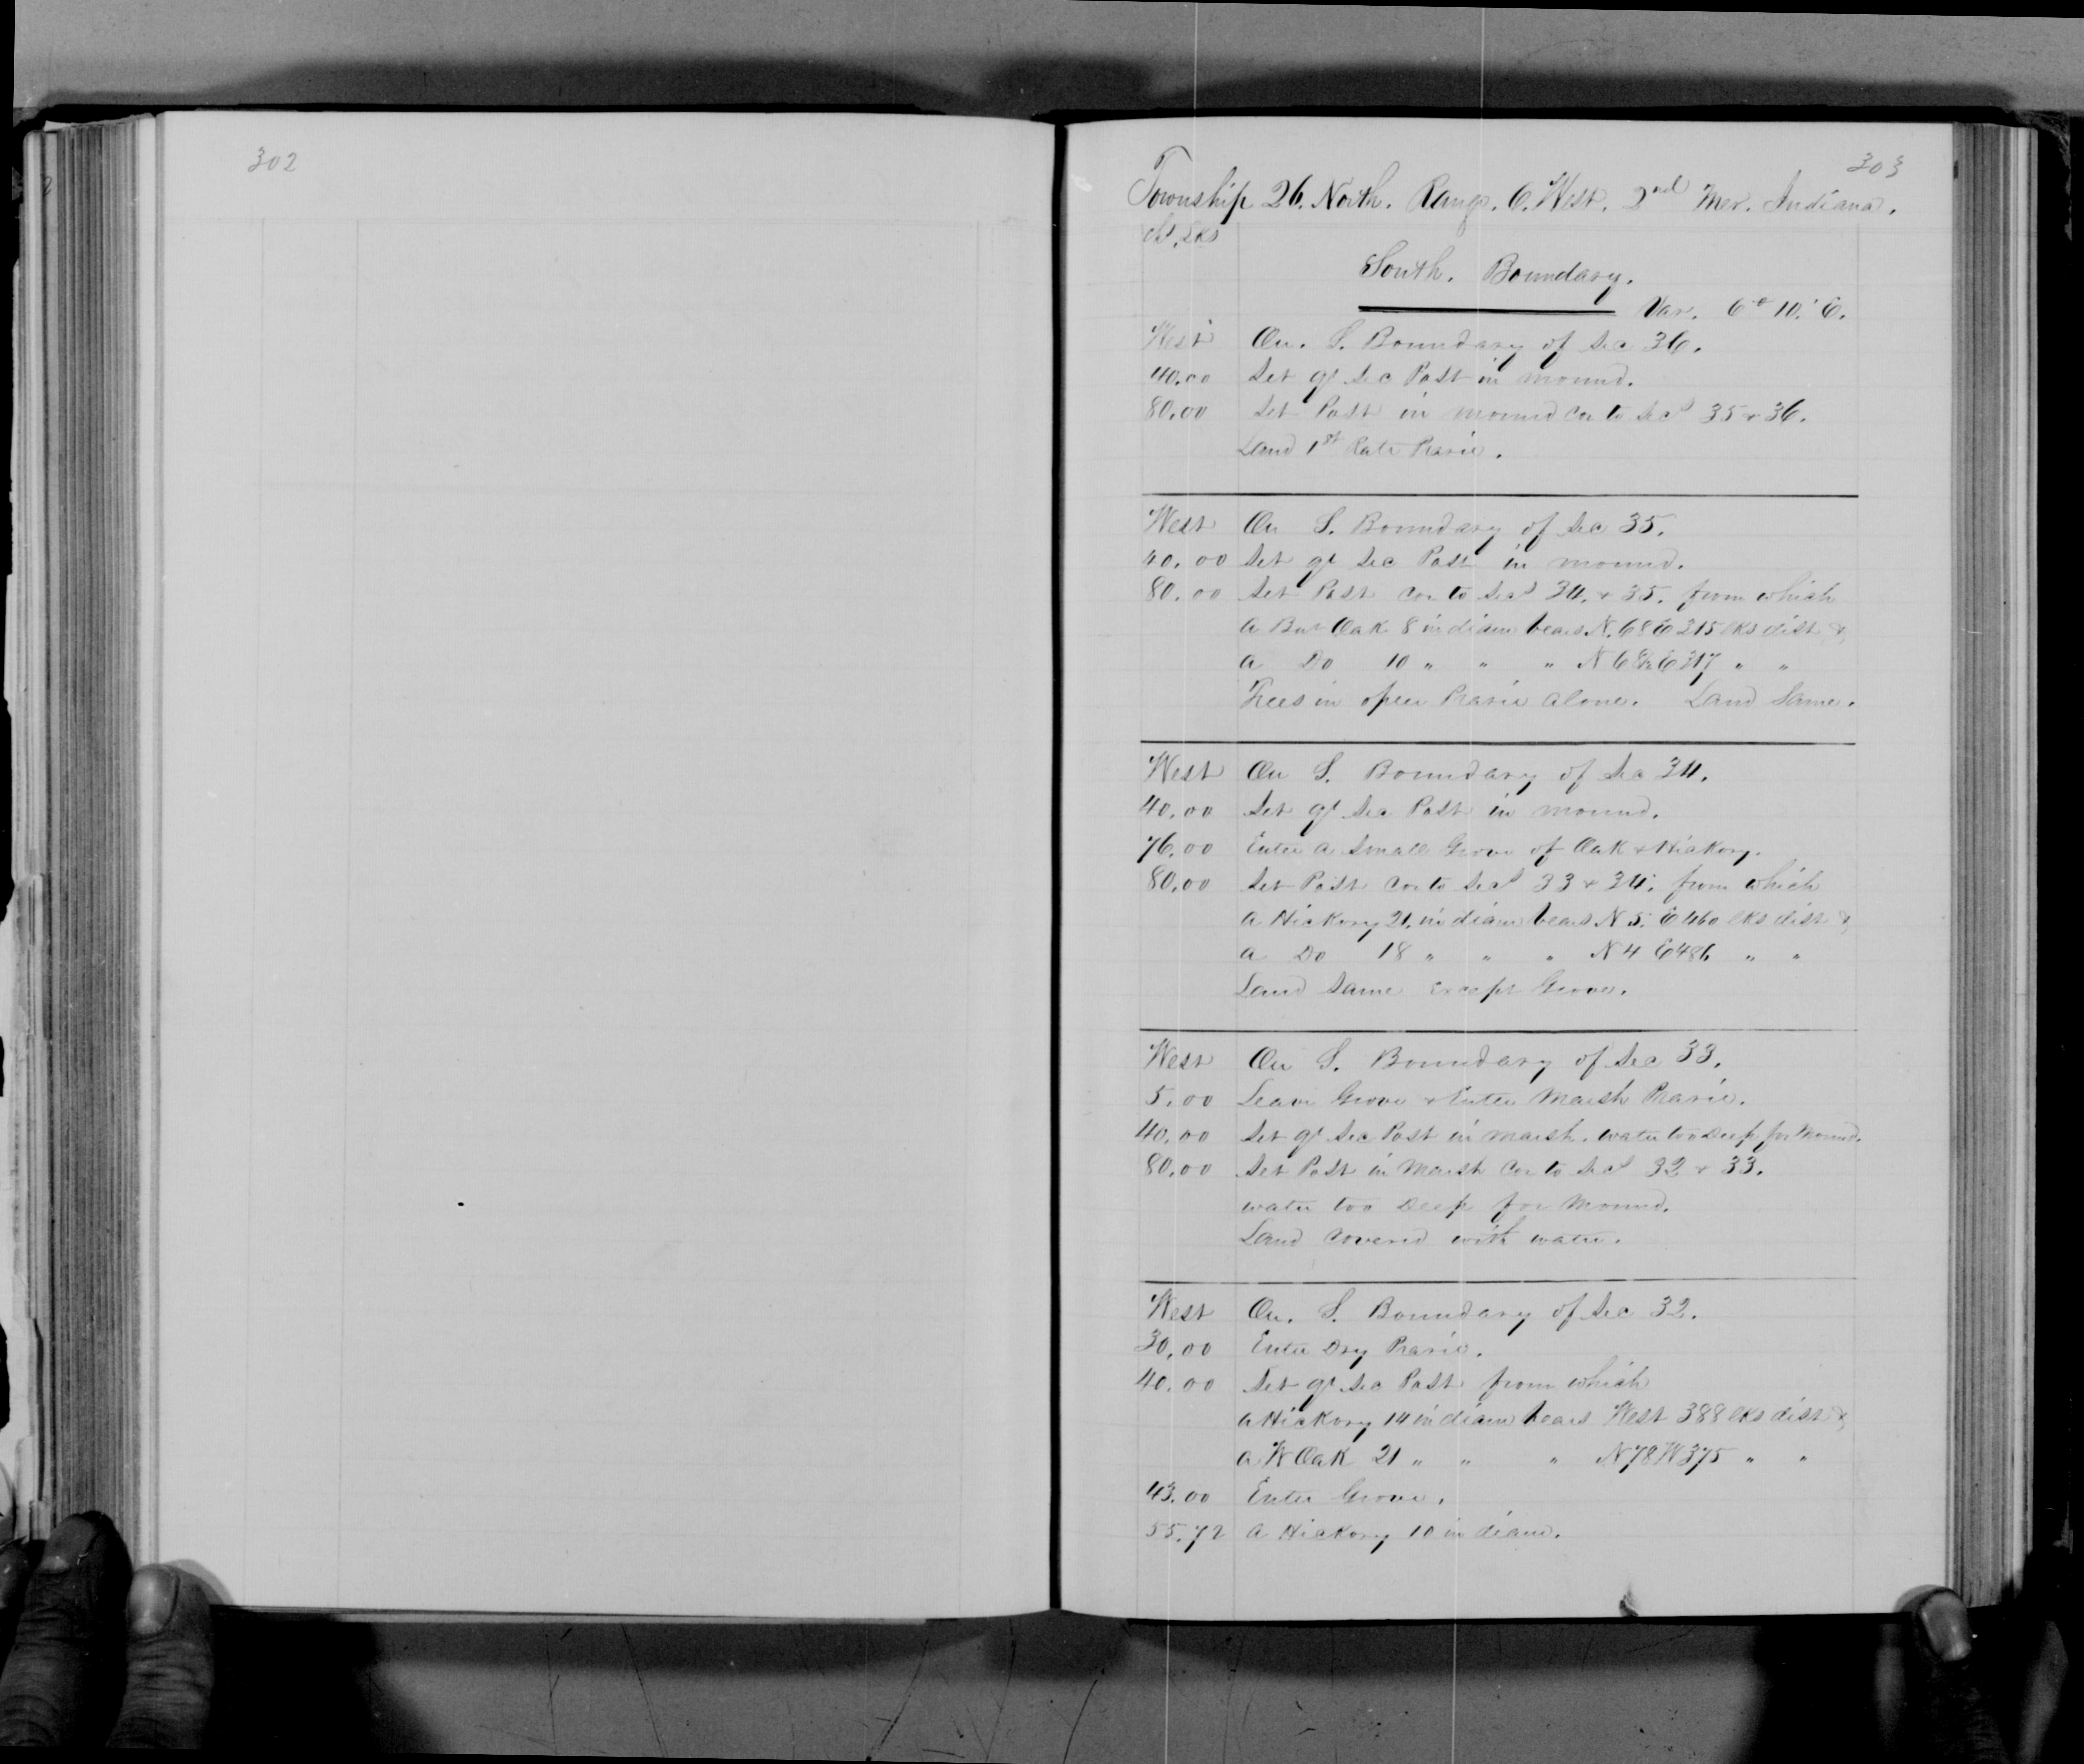 302
303
Township 26. North. Range. 6. West. 2nd Mer. Indiana.
Chs. Lks
South. Boundary.
Var. 6° 10.' E.
West On. S. Boundary of Sec 36.
40.00 Set qr Sec Post in mound.
80.00 Set Post in mound Cor to Secs 35 & 36.
Land 1st Rate Prarie.
West On S. Boundary of Sec 35.
40.00 Set qr Sec Post in mound.
80.00 Set Post Cor to Secs 34. & 35. from which
a Bur Oak 8 in diam bears N. 68 E 315 lks dist &
a Do 10 " " " N E 317 " "
Trees in open Prarie alone. Land Same.
West On S. Boundary of Sec 34.
40.00 Set qr Sec Post in mound.
76.00 Enter a Small Grove of Oak & Hickory.
80.00 Set Post Cor to Secs 33 & 34. from which
a Hickory 21. in diam bears N 5. E 460 lks dist &
a Do 18 " " " N 4 E 486 " "
Land Same except Grove.
West On S. Boundary of Sec 33.
5.00 Leave Grove & Enter Marsh Prarie.
40.00 Set qr Sec Post in marsh. water too Deep for Mound.
80.00 Set Post in Marsh Cor to Secs 32 & 33.
water too Deep for Mound.
Land Covered with water.
West On. S. Boundary of Sec 32.
30.00 Enter Dry Prarie.
40.00 Set qr Sec Post from which
a Hickory 14 in diam bears West 388 lks dist &
a W Oak 21 " " " N 78 W 375 " "
43.00 Enter Grove.
55.72 a Hickory 10 in diam.